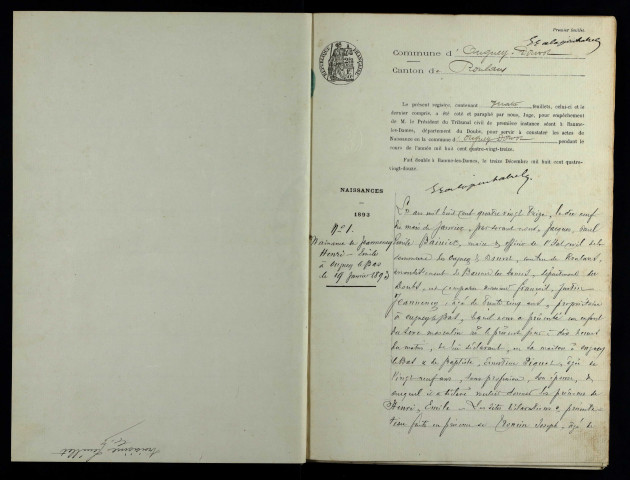 Premier feuillet.
Commune d'
Canton de Roulans
RÉPUBLIQUE FRANÇAISE
Le présent registre, contenant quatre feuillets, celui-ci et le
dernier compris, a été coté et paraphé par nous, Juge, pour empêchement
de M. le Président du Tribunal civil de première instance séant à Baume-
les-Dames, département du Doubs, pour servir à constater les actes de
Naissance en la commune d' pendant le
cours de l'année mil huit cent quatre-vingt-treize.
Fait double à Baume-les-Dames, le treize Décembre mil huit cent quatre-
vingt-douze.
NAISSANCES
1893
N° 1.
Naissance de Jeannency
Henri-Emile
à ougney le Bas
le 19 janvier 1893
L'an mil huit cent quatre vingt treize, le dix neuf
du mois de janvier, par devant nous, Jacques,
Emile maire & officier de l'État civil de la
commune de canton de Roulans,
arrondissement de Baume les Dames, département du
Doubs, est comparu françois, justin
Jeannency, âgé de trente cinq ans, propriétaire
à ougney le Bas, lequel nous a présenté un enfant
du sexe masculin né le présent jour à dix heures
du matin, de lui déclarant, en sa maison à ougney
le Bas & de âgée de
vingt neuf ans, sans profession, son épouse, &
auquel il a déclaré vouloir donner les prénoms de
Henri, Emile. Lesdites déclaration & présenta-
tion faites en présence de Joseph, âgé de
troisième feuillet